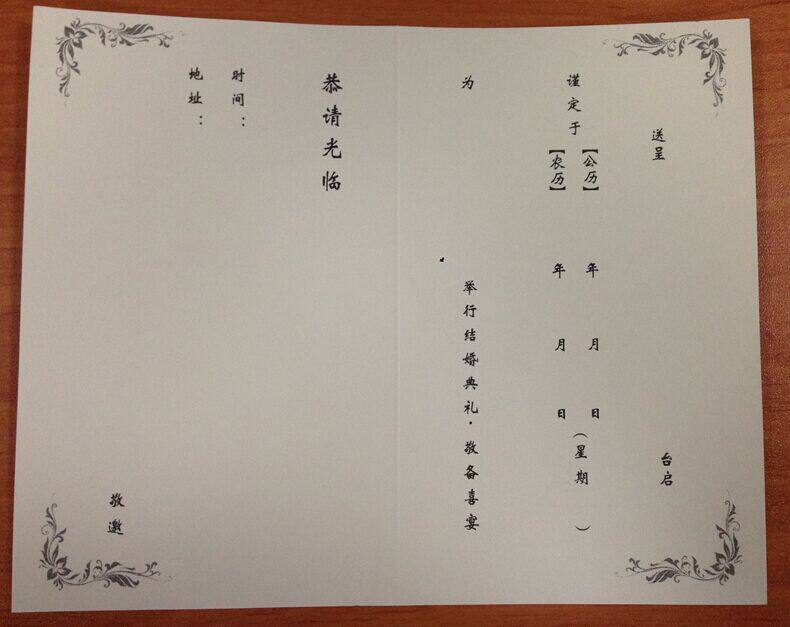 送呈 台启
谨定于
【公历】 年 月 日
【农历】 年 月 日
(星期 )
为 举行结婚典礼·敬备喜宴
恭请光临
时间：
地址：
敬邀